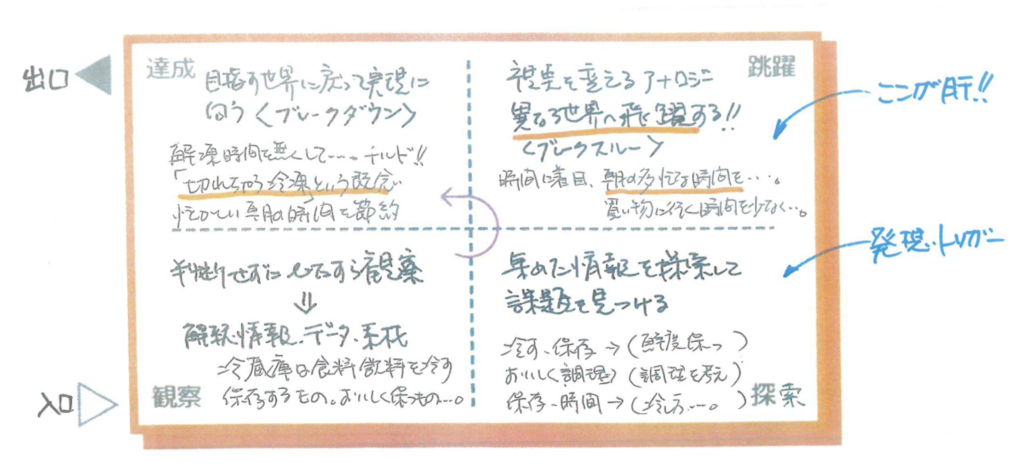 出口
達成
目指す世界に戻って実現に
向う〈ブレークダウン〉
解凍時間を無くして…。チルド!!
「切れちゃう冷凍」という概念
忙がしい朝の時間を節約
跳躍
視点を変えるアナロジー
異なる世界へ飛躍する!!
〈ブレークスルー〉
時間に着目、朝の多忙な時間を…。
買い物に行く時間を少なく…。
ここが肝!!
発現・トリガー
判断せずにひたすら観察
⇓
解釈、情報、データ、素材
冷蔵庫は食料飲料を冷す
保存するもの。おいしく保つもの…。
観察
入口
集めた情報を探索して
課題を見つける
冷す、保存 → (鮮度保つ)
おいしく調理 → (調理を考え)
保存、時間 → (冷方…。)
探索